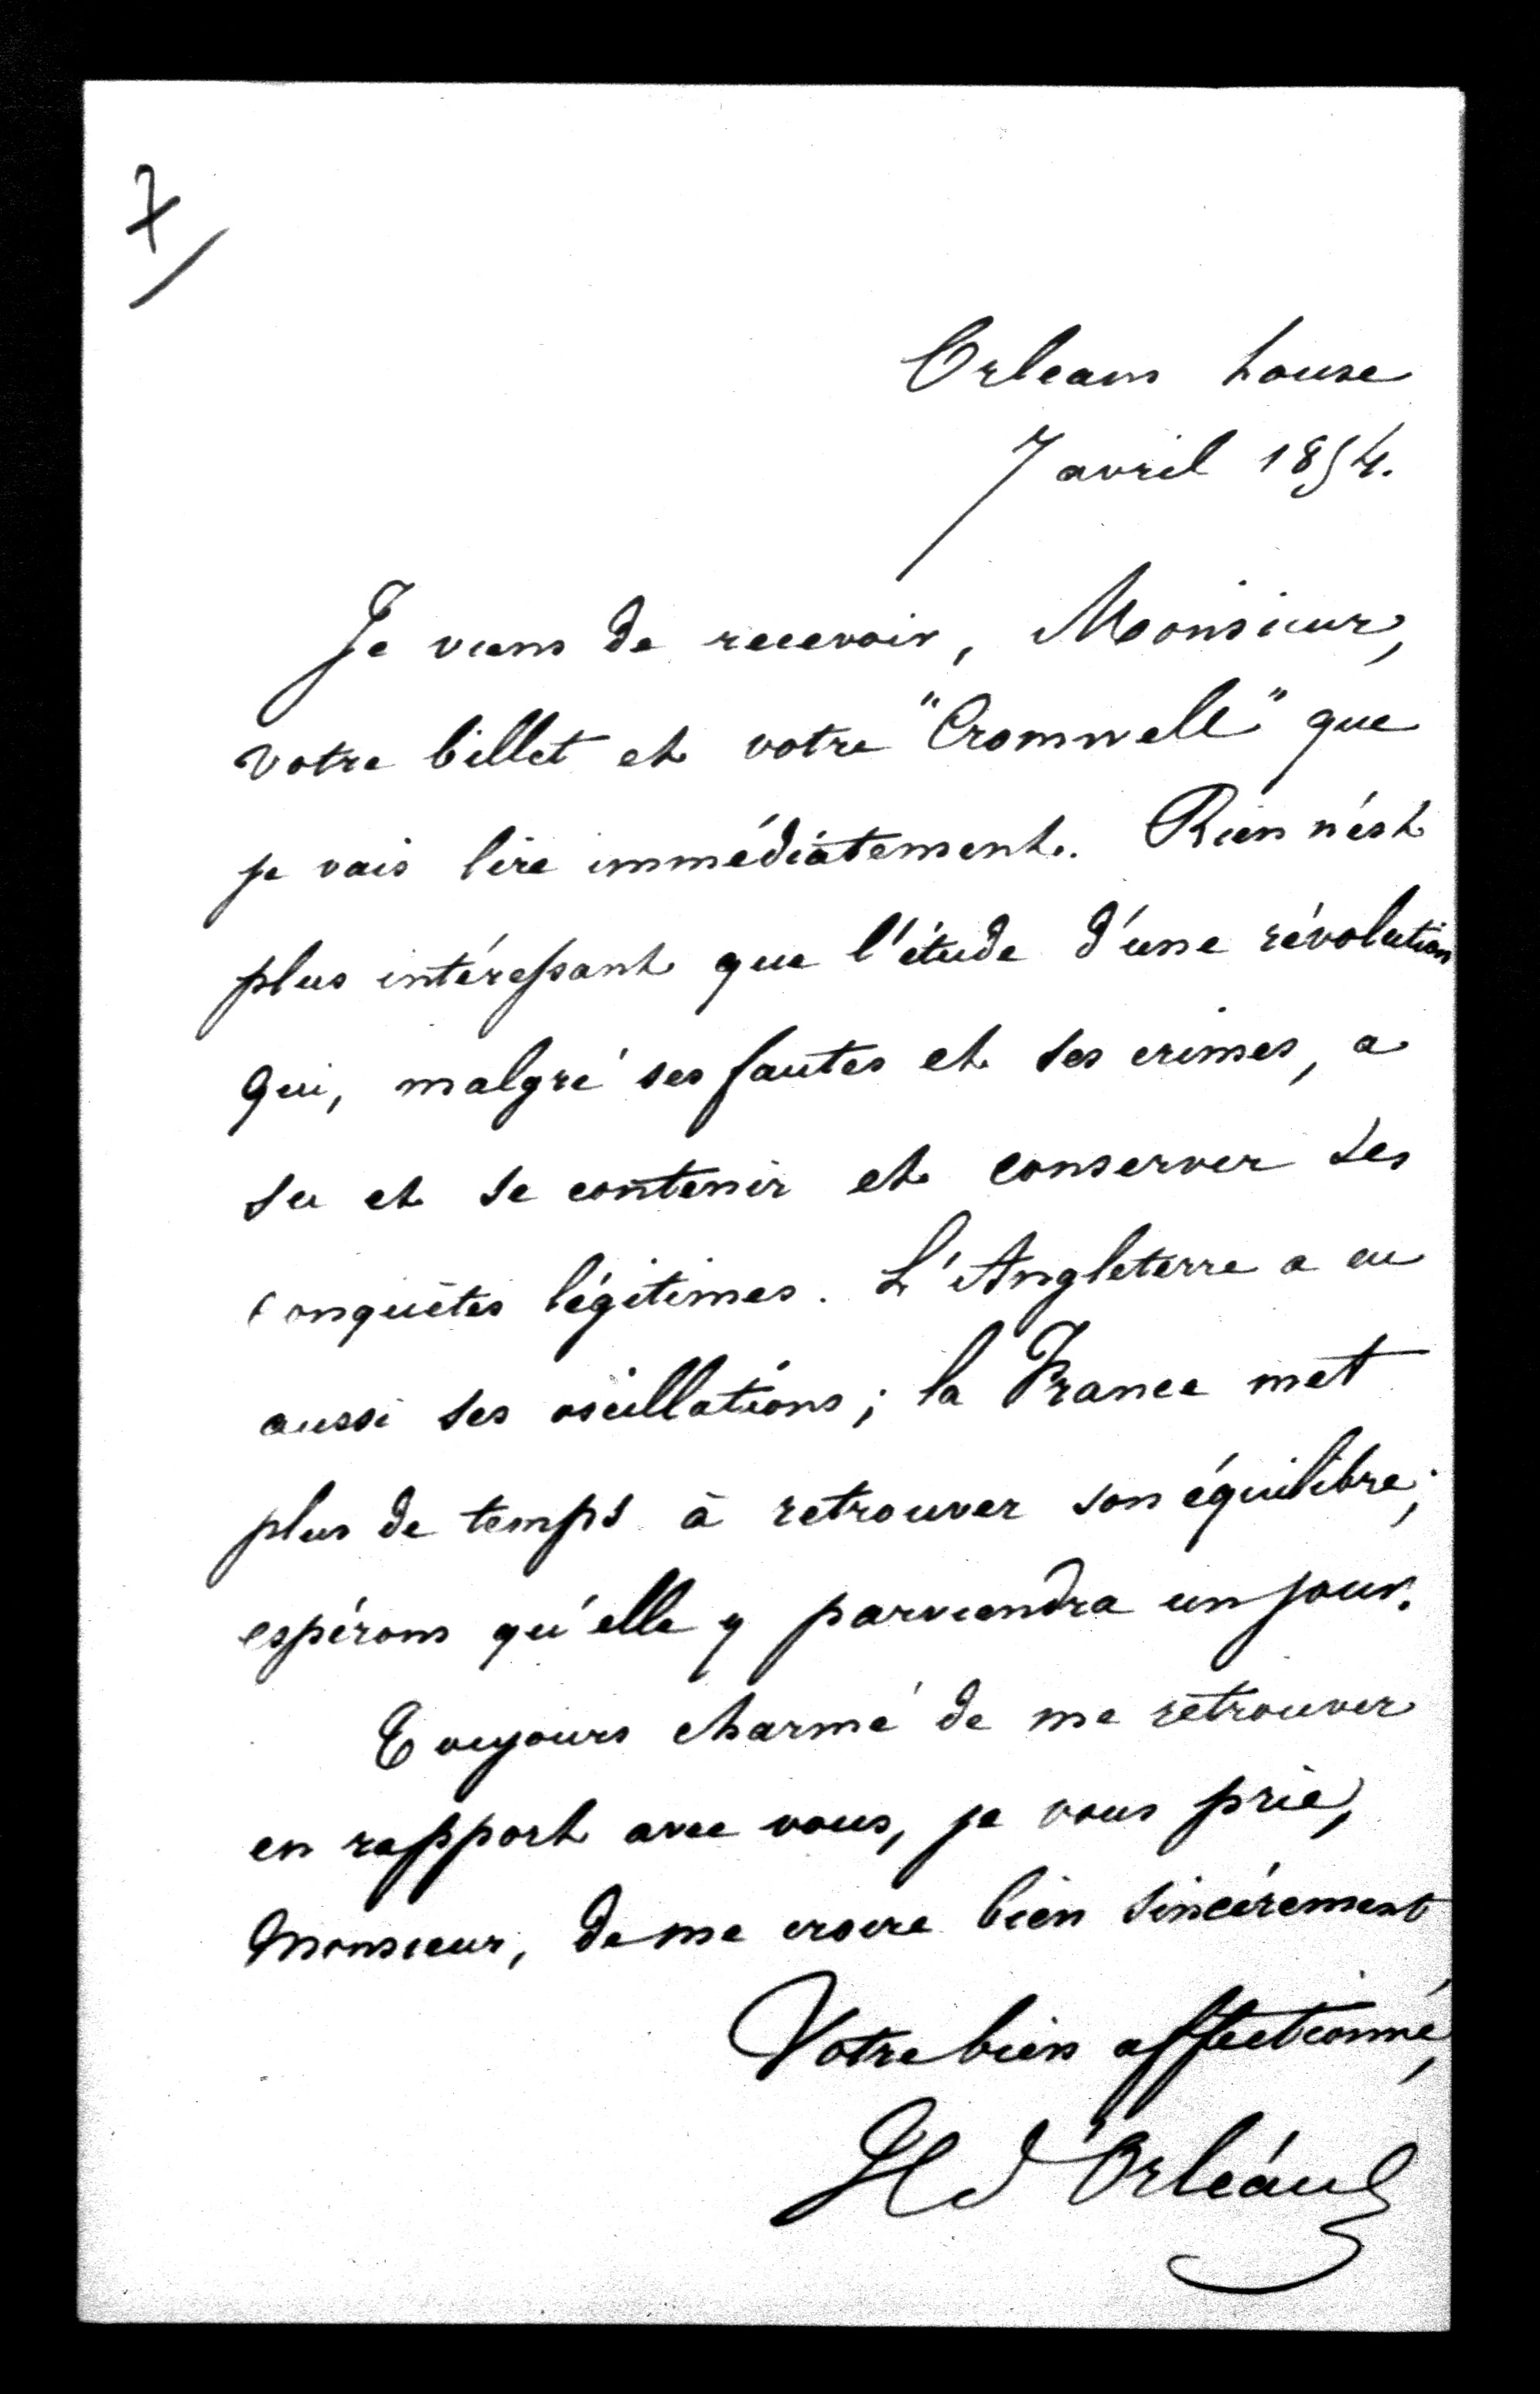 7
Orleans house
7 avril 1854.
Je viens de recevoir, Monsieur,
votre billet et votre "Cromwell" que
je vais lire immédiatement. Rien n'est
plus intéressant que l'étude d'une révolution
qui, malgré ses fautes et ses crimes, a
su et se contenir et conserver ses
conquêtes légitimes. L'Angleterre a eu
aussi ses oscillations; la France met
plus de temps à retrouver son équilibre;
espérons qu'elle y parviendra un jour.
Toujours charmé de me retrouver
en rapport avec vous, je vous prie,
Monsieur, de me croire bien sincèrement,
Votre bien affectionné,
H d'Orléans